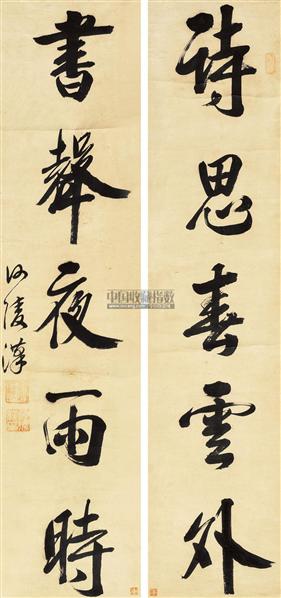 詩思春雲外
書聲夜雨時
何凌漢
中国收藏指数